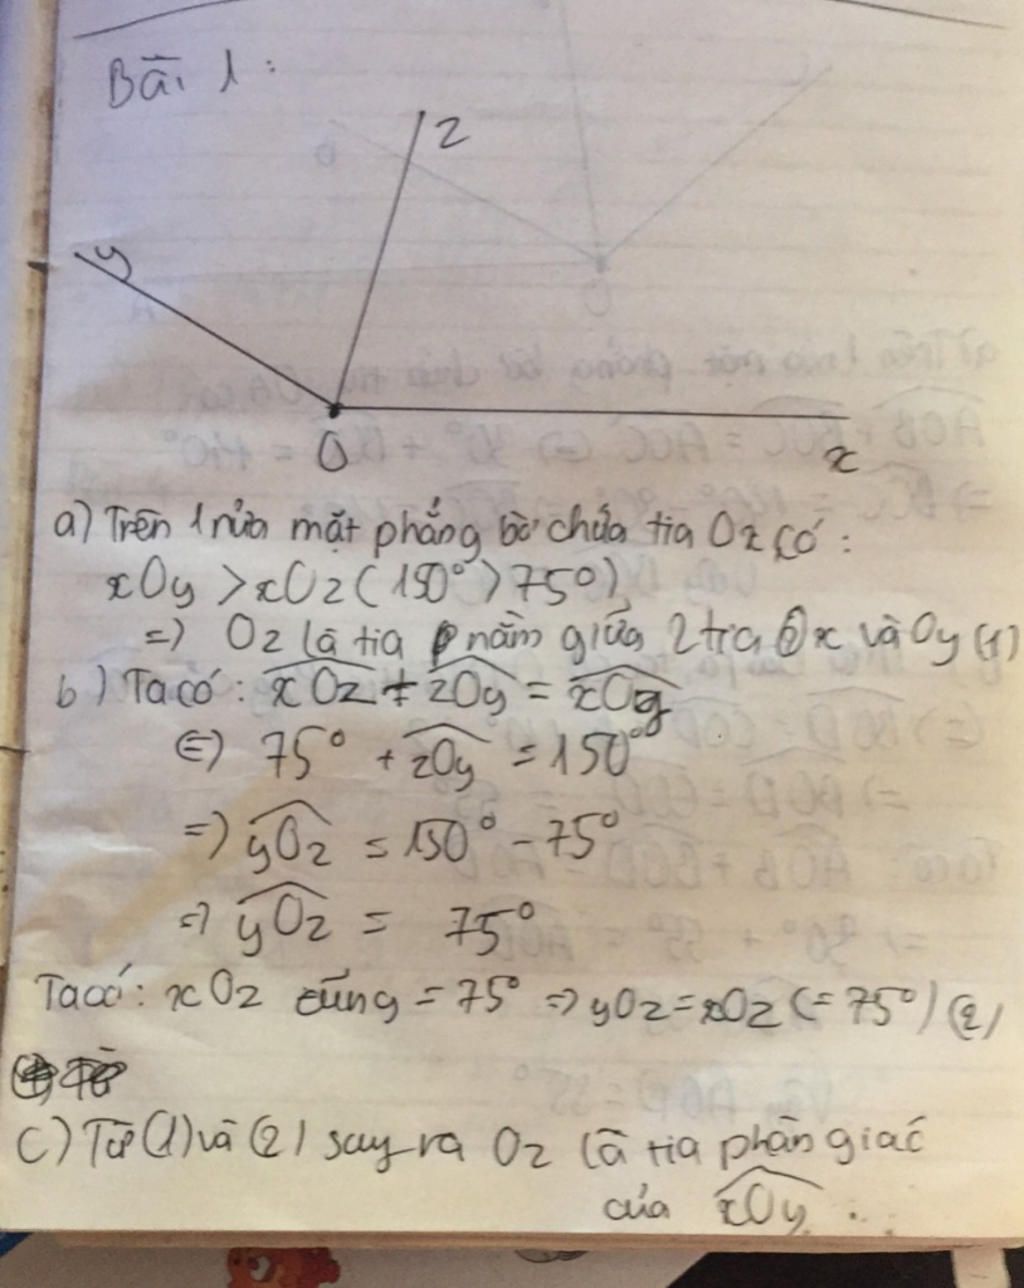 Bài 1:
z
y
O
x
a) Trên 1 nửa mặt phẳng bờ chứa tia Ox có:
xOy > xOz (150° > 75°)
=> Oz là tia nằm giữa 2 tia Ox và Oy (1)
b) Ta có: xOz + zOy = xOy
<=> 75° + zOy = 150°
=> yOz = 150° - 75°
=> yOz = 75°
Ta có: xOz cũng = 75° => yOz = xOz (= 75°) (2)
c) Từ (1) và (2) say ra Oz là tia phân giác
của xOy.